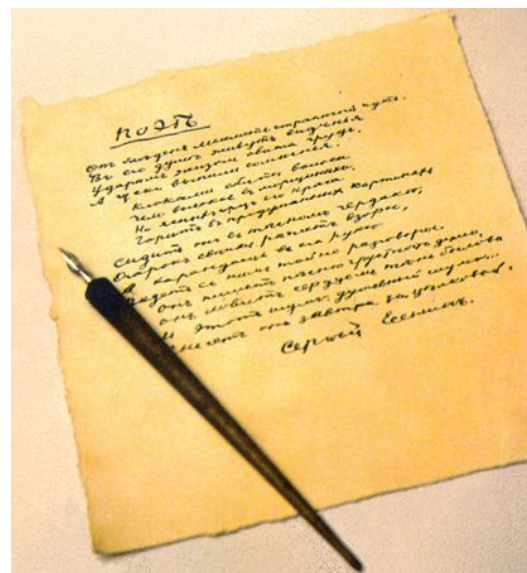 Поэтъ
Онъ блѣденъ. Мыслитъ страшный путь.
Въ его душѣ живутъ видѣнья.
Ударомъ жизни вбита грудь,
А щеки выпили сомнѣнья.
Клоками сбиты волоса
Чело высокое въ морщинахъ.
Но ясныхъ грезъ его краса
Горитъ въ продуманныхъ картинахъ
Сидитъ онъ въ тѣсномъ чердакѣ,
Огарокъ свѣчки рѣжетъ взоры,
А карандашъ въ его рукѣ
Ведетъ съ нимъ тайно разговоры.
Онъ пишетъ пѣсню грустныхъ думъ,
Онъ ловитъ сердцемъ тѣнь былова
И этотъ шумъ.. душевный шумъ...
Снесетъ онъ завтра за цѣлковый.
Сергѣй Есенинъ.